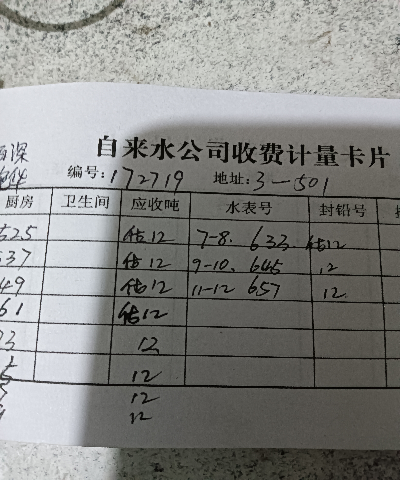 自来水公司收费计量卡片
编号:172719 地址:3-501
厨房 卫生间 应收吨 水表号 封铅号
525 估12 7-8. 633 估12
537 估12 9-10. 645 12
549 估12 11-12 657 12
61 估12
12
12
12
12